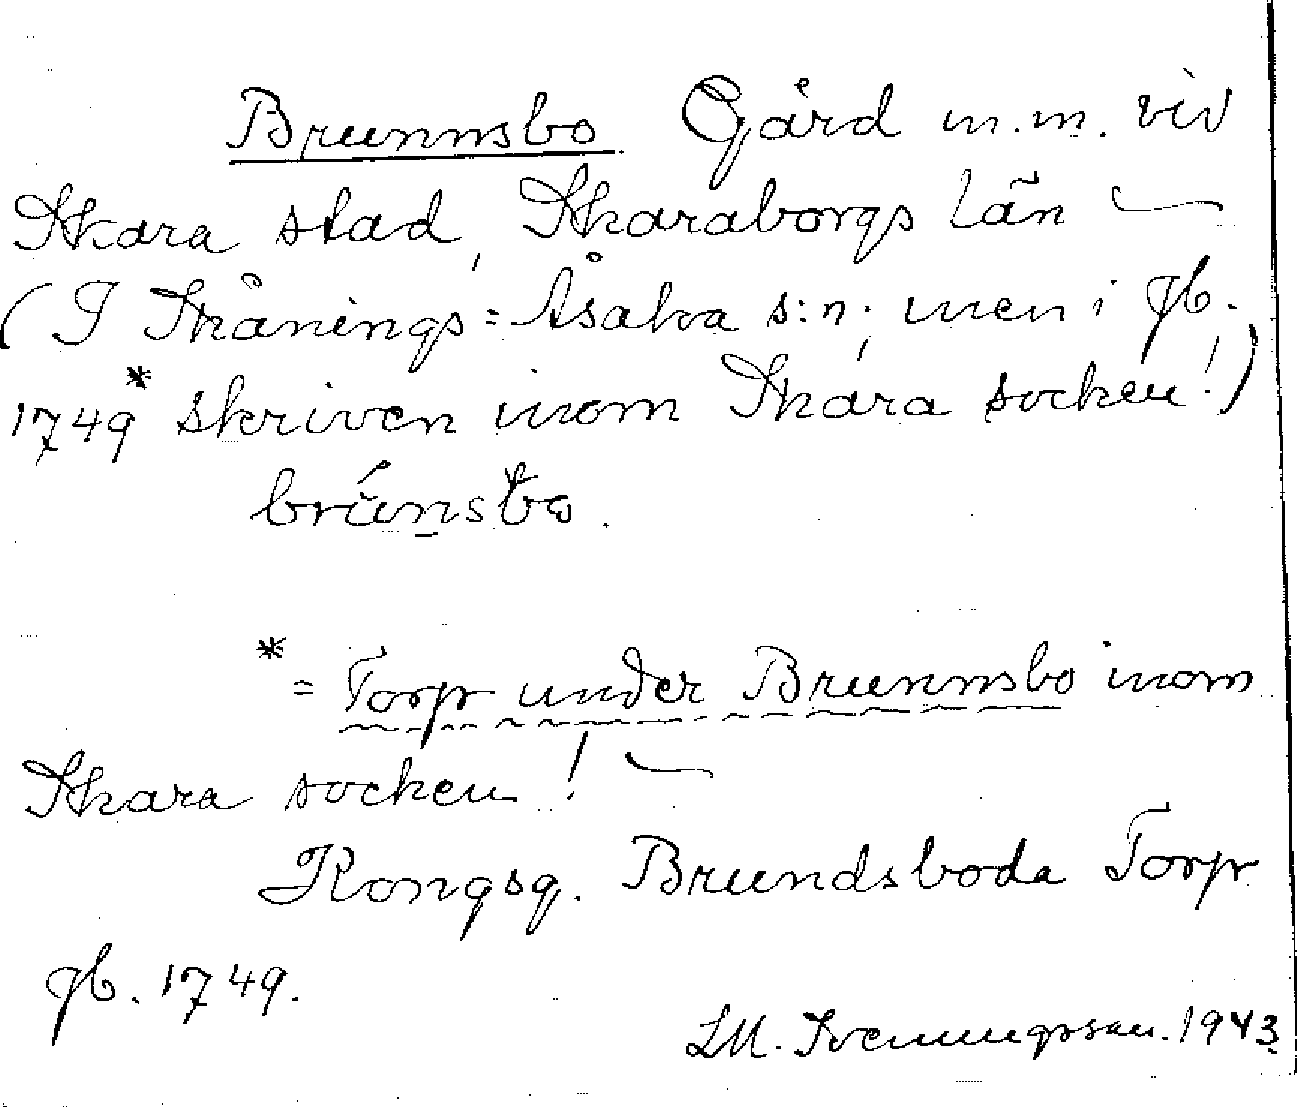 Brunnsbo. Gård m.m. vid
Skara stad, Skaraborgs län —
(I Skånings=Åsaka s:n; men i jb.
1749* skriven inom Skara socken!)
brúnsbo.
*= Torp under Brunnsbo inom
Skara socken! —
Kongsg. Brundsboda Torp
jb. 1749.
LM. Svenungsson. 1943